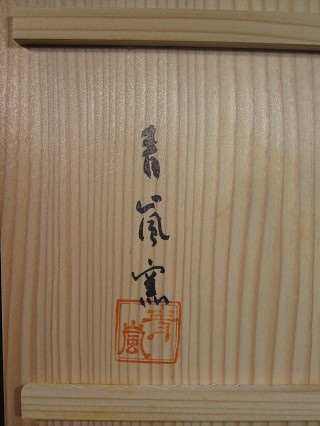 青嵐窯
青嵐